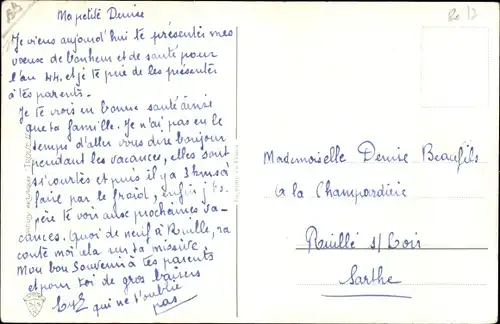 Ma petite Denise
Je viens aujourd'hui te présenter mes
voeux de bonheur et de santé pour
l'an 44. et je te prie de les présenter
à tes parents.
Je te crois en bonne santé ainsi
que ta famille. Je n'ai pas eu le
temps d'aller vous dire bonjour
pendant les vacances, elles sont
si courtes et puis il y a
faire par le froid, enfin j'es-
père te voir aux prochaines va-
cances. Quoi de neuf à Ruillé, ra
conte moi cela sur ta missive.
Mon bon Souvenir à tes parents
et pour toi de gros baisers
qui ne t'oublie
pas
Mademoiselle Denise Beaufils
a la Champardière
Ruillé s/ Loir
Sarthe